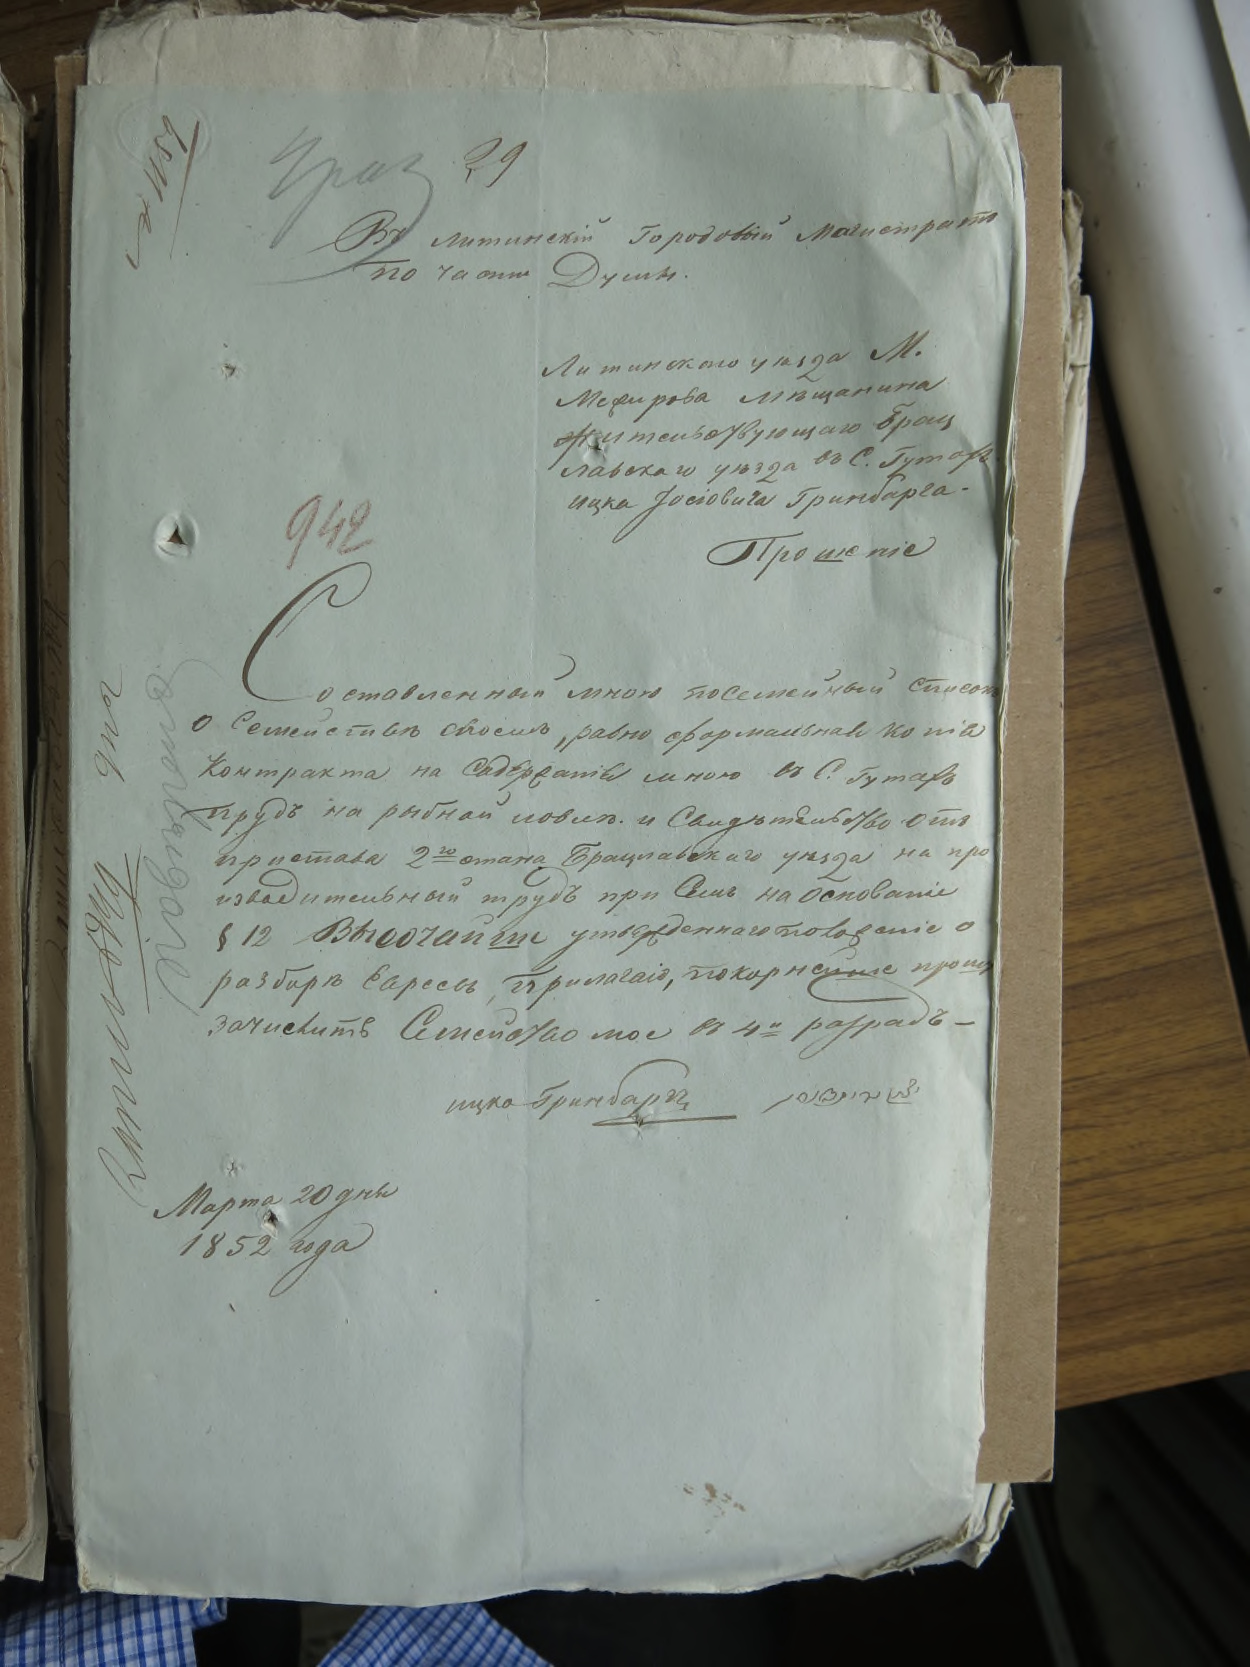 № 1159
29
Въ Литинскій Городовый Магистратъ
по части Думы.
Литинского уѣзда М.
Межирова мѣщанина
жительствующаго Брац
лавскаго уѣзда въ С. Гутахъ
ицка Іосіовича Гринбарга-
Прошеніе
942
Составленный мною посемейный списокъ
о Семействѣ своемъ, равно формальная копія
Контракта на Содержаніе мною въ С. Гутахъ
прудъ на рыбной ловлѣ. и Свидѣтельство отъ
пристава 2го стана Брацлавскаго уѣзда на про
изводительный трудъ при Семъ на Основаніе
§ 12 Высочайше утвержденнаго Положеніе о
разборѣ Евреевъ, Прилагаю, покорнейше прошу
зачислить Семейство мое въ 4й разрядъ-
ицко Гринбаргъ
Марта 20 дня
1852 года